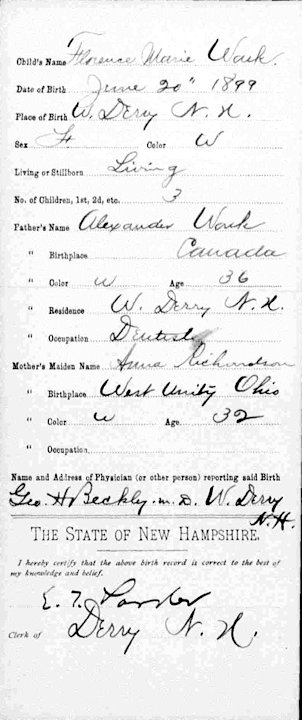 Child's Name Florence Marie Wouk
Date of Birth June 20" 1899
Place of Birth W. Derry N. H.
Sex F Color W
Living or Stillborn Living
No. of Children, 1st, 2d, etc. 3
Father's Name Alexander Wouk
" Birthplace Canada
" Color W Age 36
" Residence W. Derry N. H.
" Occupation Dentist
Mother's Maiden Name Anna Richardson
" Birthplace West Unity Ohio
" Color W Age 32
" Occupation
Name and Address of Physician (or other person) reporting said Birth
Geo. H Beckley m. D. W. Derry
N. H.
THE STATE OF NEW HAMPSHIRE.
I hereby certify that the above birth record is correct to the best of
my knowledge and belief.
E. T.
Clerk of Derry N. H.